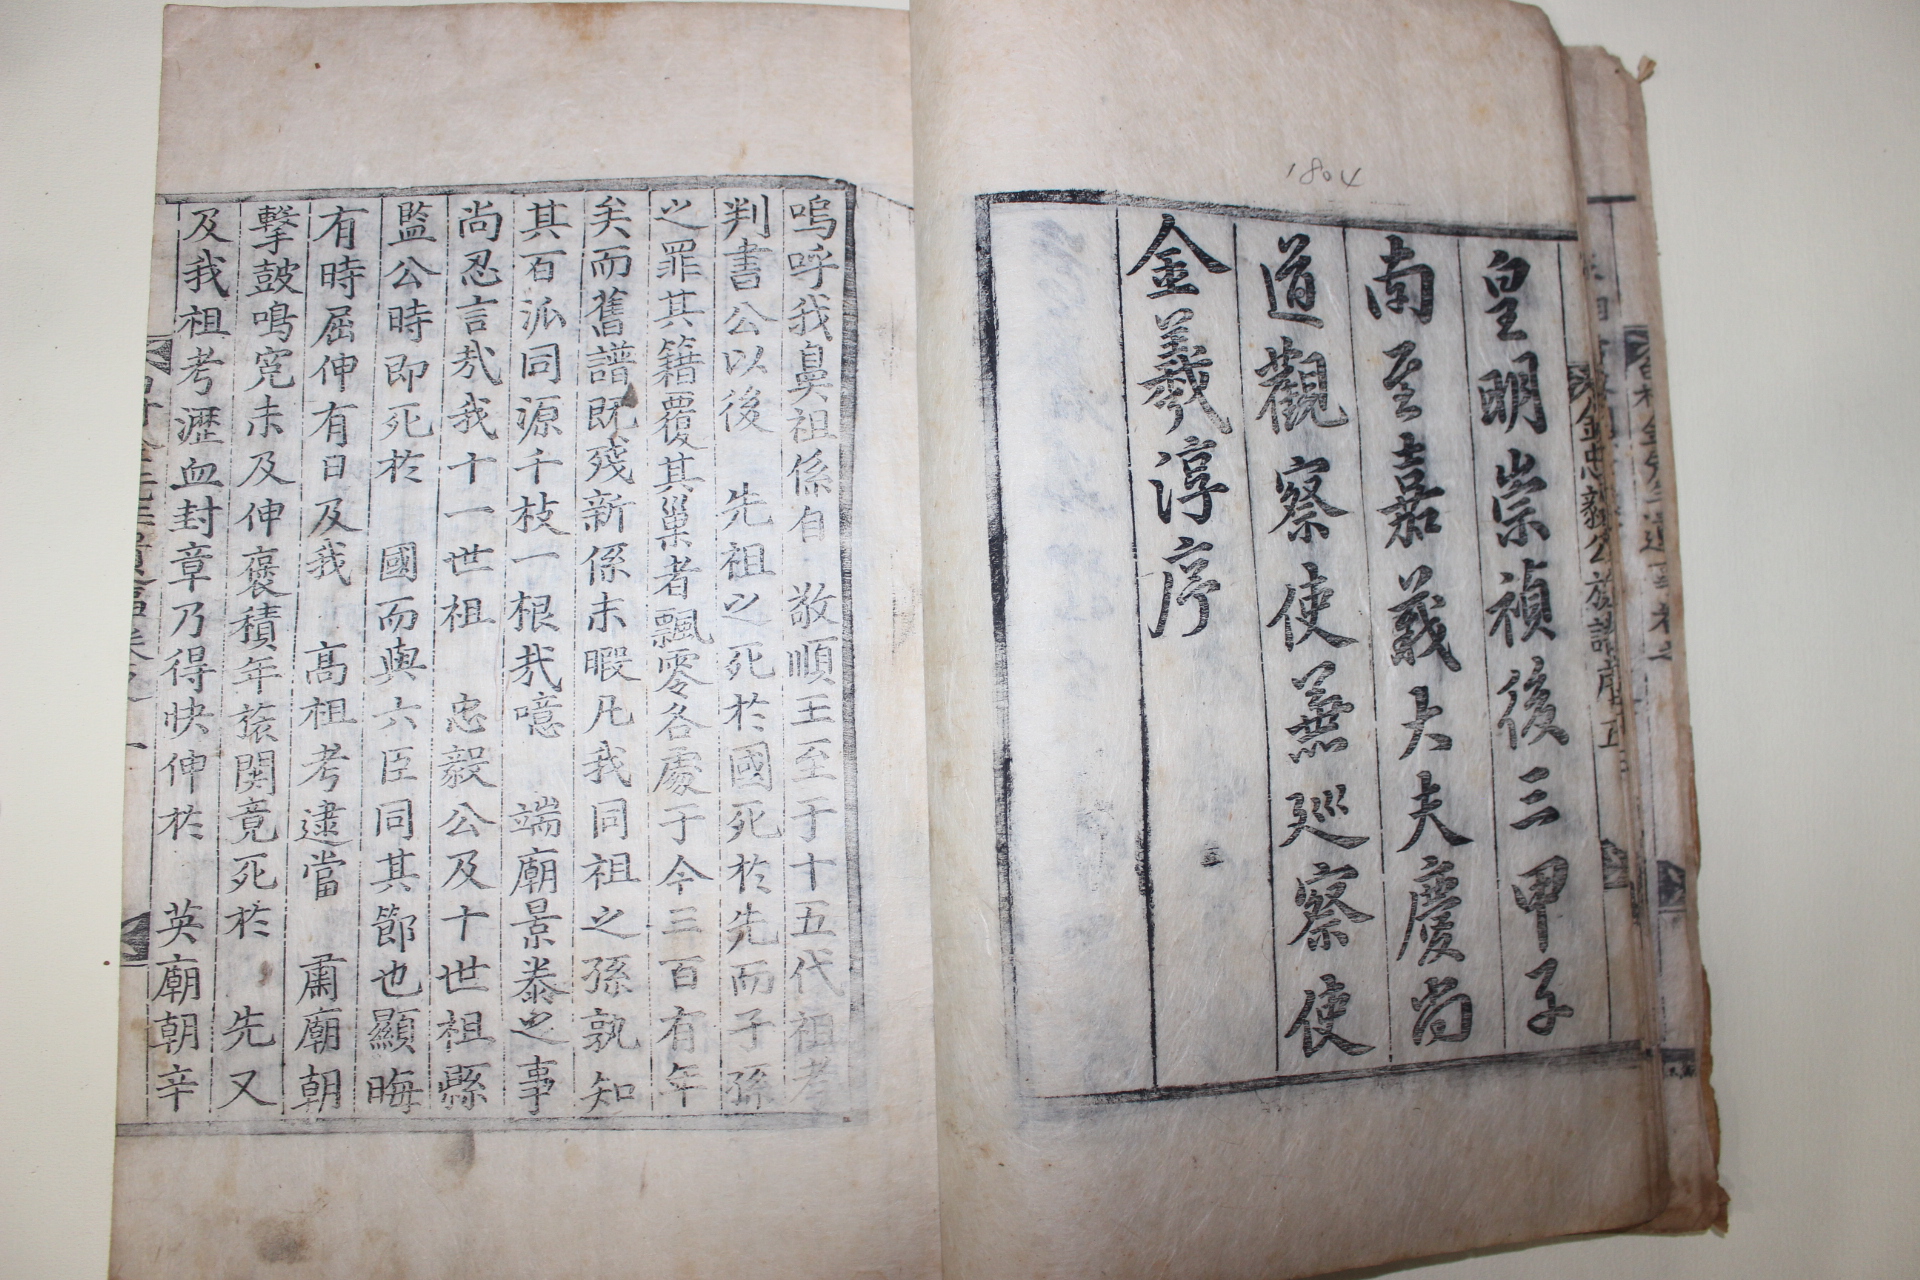 1804
皇明崇禎後三甲子
南至嘉義大夫慶尚
道觀察使兼巡察使
金羲淳序
嗚呼我鼻祖係自 敬順王至于十五代祖考
判書公以後 先祖之死於國死於先而子孫
之罪其籍覆其巢者飄零各處于今三百有年
矣而舊譜既殘新係未暇凡我同祖之孫孰知
其百派同源千枝一根㢤噫 端廟景泰之事
尚忍言㢤我十一世祖 忠毅公及十世祖縣
監公時即死於 國而與六臣同其節也顯晦
有時屈伸有日及我 高祖考逮當 肅廟朝
擊鼓鳴寃未及伸褒積年菾関竟死於 先又
及我祖考瀝血封章乃得快伸於 英廟朝辛
金忠毅公族譜序 五